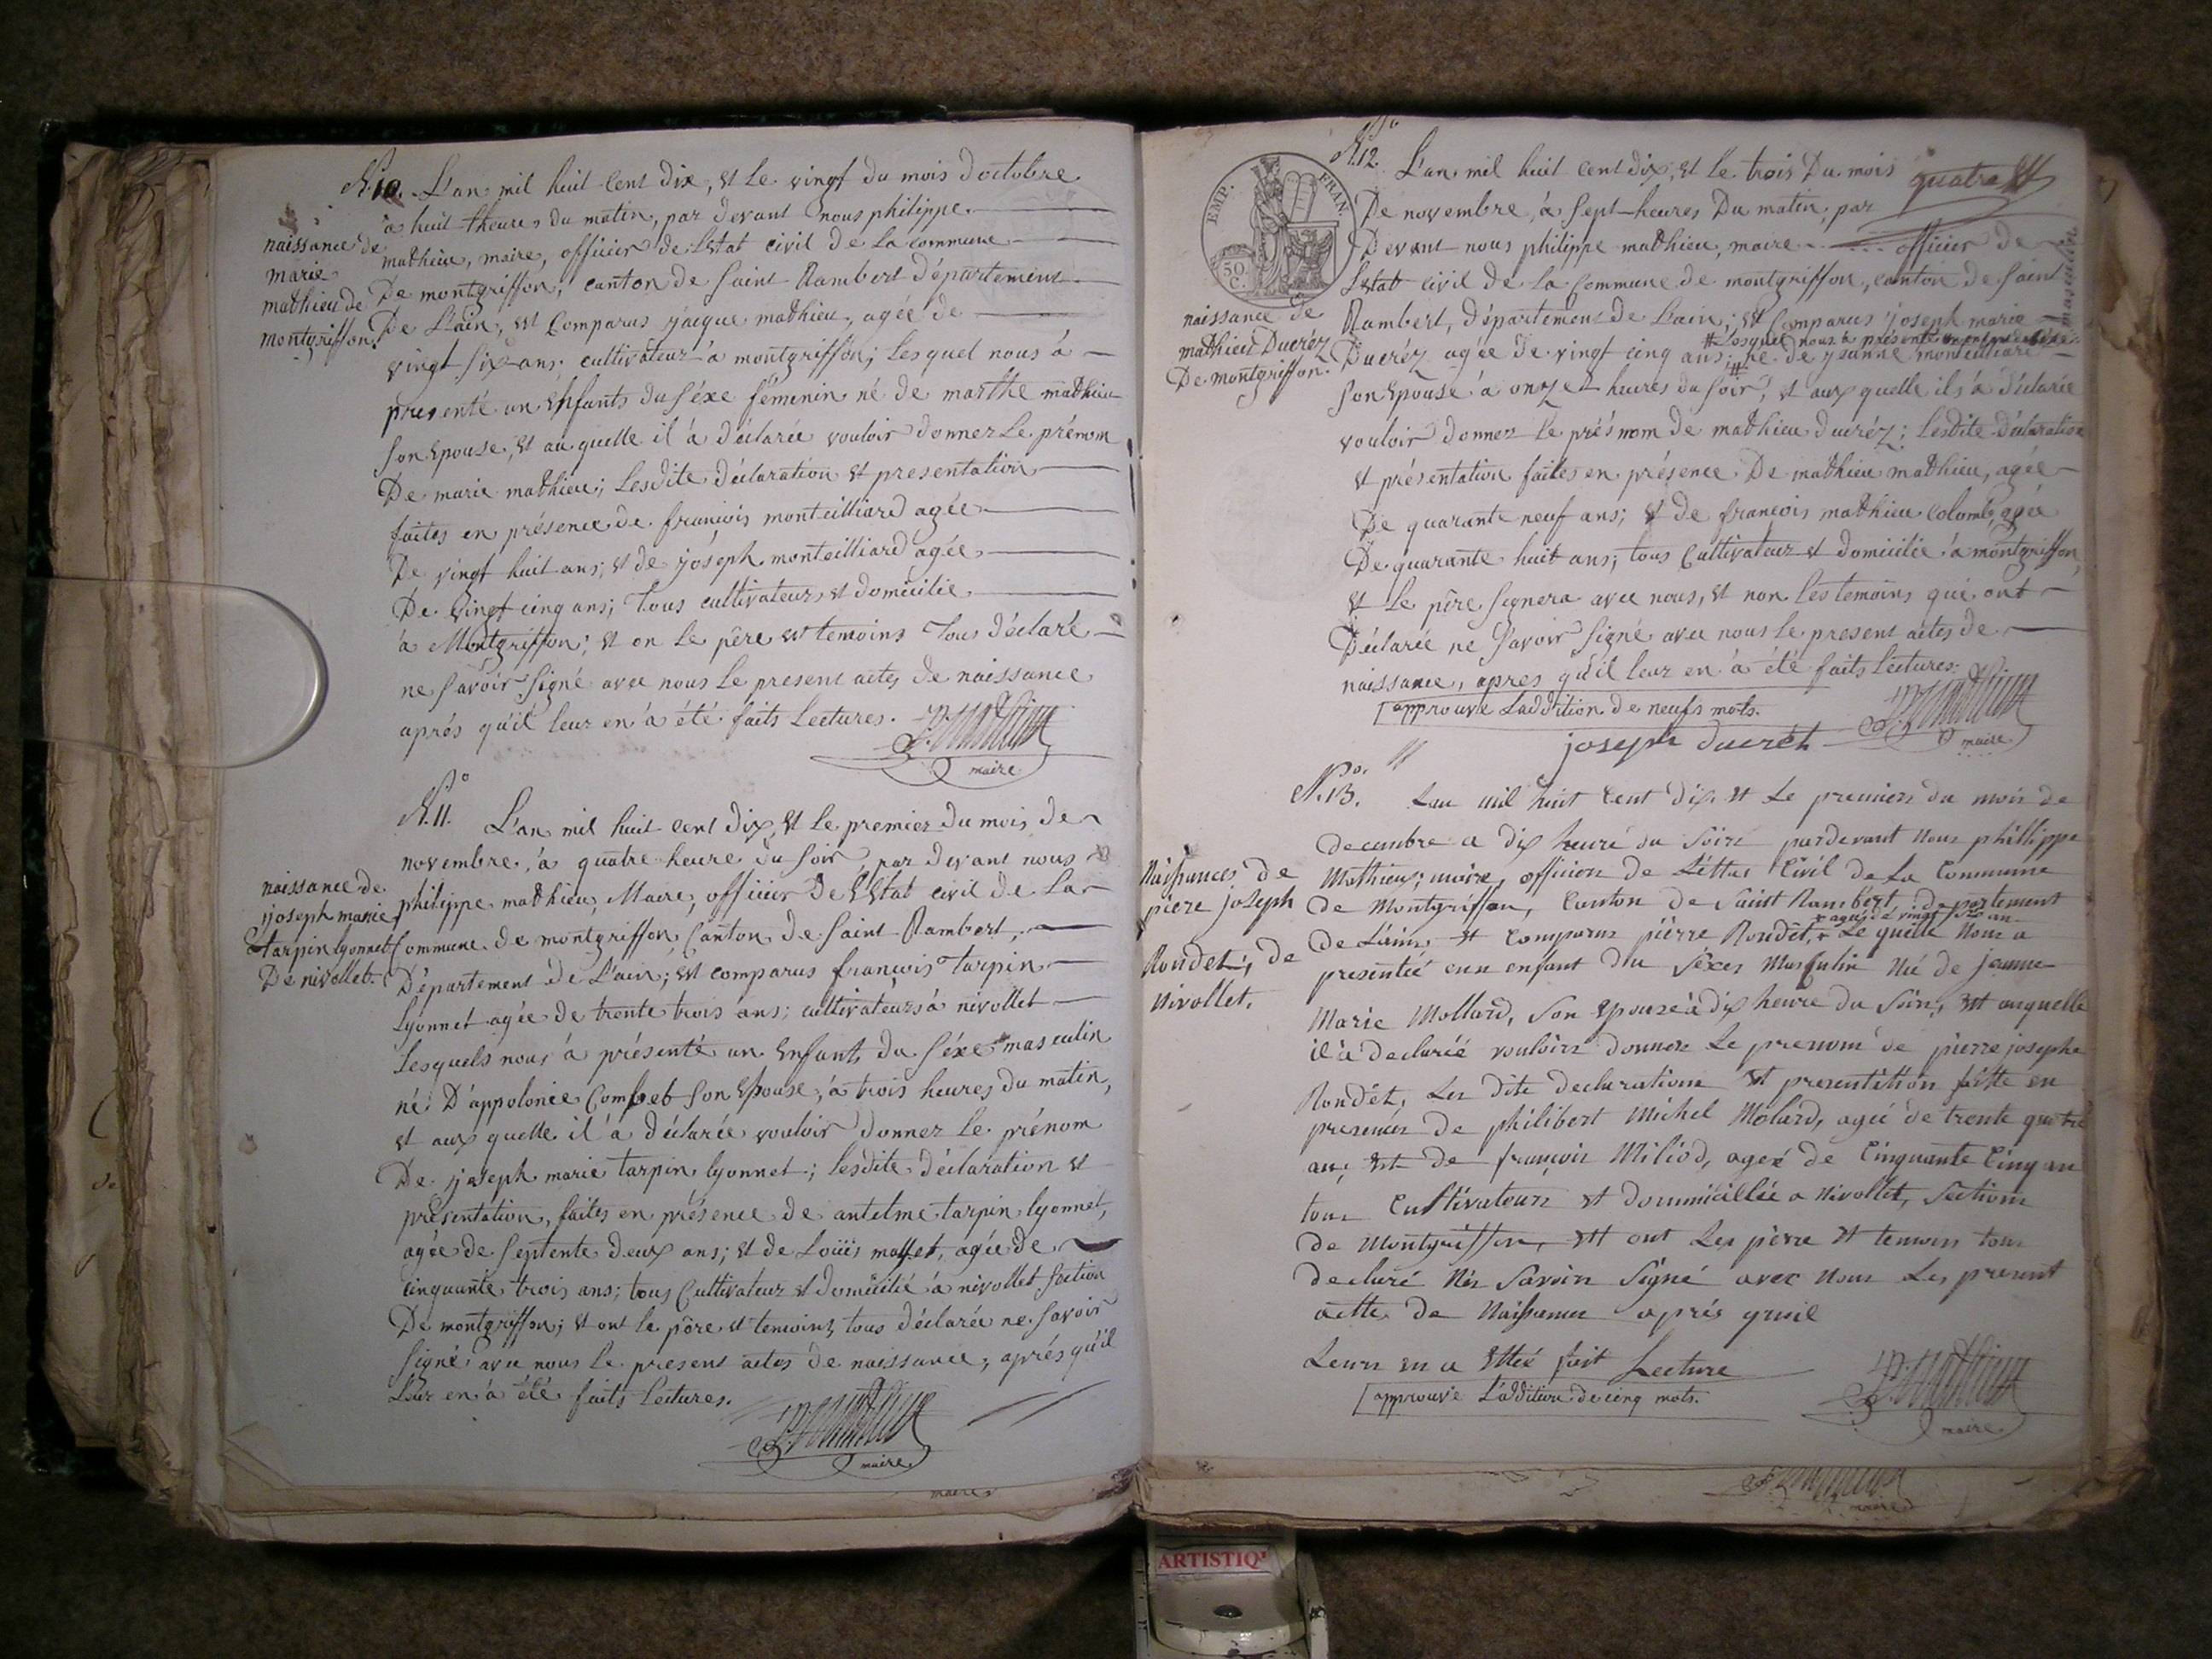 N.° 10. L'an mil huit cent dix, et le vingt du mois d'octobre
à huit heures du matin, par devant nous philippe
mathieu, maire, officier de L'Etat civil de la commune
De montgriffon, canton de saint Rambert département
De L'ain, est Comparus jacque mathieu, agée de
vingt six ans; cultivateur à montgriffon; lesquel nous à
presenté un Enfants du séxe féminin né de marthe mathieu
son Epouse, et au quelle il à déclarée vouloir donner le prénom
De marie mathieu; lesdite déclaration et presentation
faites en présence de francois monteilliard agée
De vingt huit ans; et de joseph monteilliard agée
De vingt cinq ans; tous cultivateurs et domicilie
à Montgriffon; et on le père et temoins tous déclaré
ne savoir signé avec nous le present actes de naissance
après qu'il leur en à été faits lectures.
P. Mathieu
maire
naissance de
marie
mathieu de
montgriffon.
N.° 11. L'an mil huit cent dix, et le premier du mois de
novembre, à quatre heure du soir, par devant nous
philippe mathieu, Maire, officier de L'Etat civil de la
Commune de montgriffon, Canton de saint Rambert,
Département de L'ain; est comparus francois tarpin
lyonnet agée de trente trois ans; cultivateurs à nivollet
lesquels nous à présenté un Enfants du séxe masculin
né D'appolonie Combet son Epouse, à trois heures du matin,
et aux quelle il à déclarée vouloir donner le prénom
De joseph marie tarpin lyonnet; lesdite déclaration et
présentation, faites en présence de antelme tarpin lyonnet,
agée de septente deux ans; et de Louis mallet, agée de
cinquante trois ans; tous Cultivateur et domicilié à nivollet section
De montgriffon; et ont le père et temoins tous déclarée ne savoir
signé avec nous le present actes de naissance, après qu'il
Leur en à été faits lectures.
P. Mathieu
maire
naissance de
joseph marie
tarpin lyonnet
De nivollet.
N.° 12. L'an mil huit cent dix, et le trois Du mois
quatre
De novembre, à sept heures Du matin, par
Devant nous philippe mathieu, maire officier de
L'etat civil de la Commune de montgriffon, canton de saint
Rambert, département de L'ain; est Comparus joseph marie
# Lesquel nous à présenté un enfant du séxe masculin
Ducréz agée de vingt cinq ans; # né de ysanne monteilliard
son Epouse à onze heures du soir, et aux quelle ils à déclarée
vouloir donner le présnom de mathieu ducréz; lesdite déclaration
et présentation faites en présence De mathieu mathieu, agée
De quarante neuf ans; et de francois mathieu colomb agée
De quarante huit ans; tous Cultivateur et domicilie à montgriffon,
et le père signera avec nous, et non les temoins qui ont
Déclarée ne savoir signé avec nous le present actes de
naissance, apres qu'il leur en à été faits lectures.
[approuve L'addition de neufs mots.
joseph ducrét
P. Mathieu
maire
naissance de
mathieu Ducréz
De montgriffon.
EMP. FRAN.
50 C.
N.° 13. Lan mil huit Cent Dix et Le premier du mois de
decembre a dix heure du soire pardevant nous phillippe
Mathieu; maire, officier de L'ettat Civil de La Commune
de Montgriffon, Canton de saint Rambert, departement
+ agée de vingt six an
de L'ain et Comparus pierre Rondet, + Le quelle nous a
presentée eun enfant du séxes masculin né de jeanne
Marie Mollard, son epouse à dix heure du soire, et auquelle
il à declarée vouloire donner Le prenom de pierre joseph
Rondet, Les dite declaration et presentation faitte en
presences de philibert Michel Molard, agée de trente quatre
an, et de françois Miliod, ageé de Cinquante Cinq an
tous Cultivateurs et dommicillie a Nivollet, section
de Montgriffon, et ont Les pere et temoins tous
declaré nes savoir signé avec nous Les present
actte de Naissance après quil
Leurs en a ettee fait Lecture
[approuvé L'addition de cinq mots.
P. Mathieu
maire
Naissances de
piere joseph
Rondet, de
Nivollet.
maire
maire
ARTISTIQ